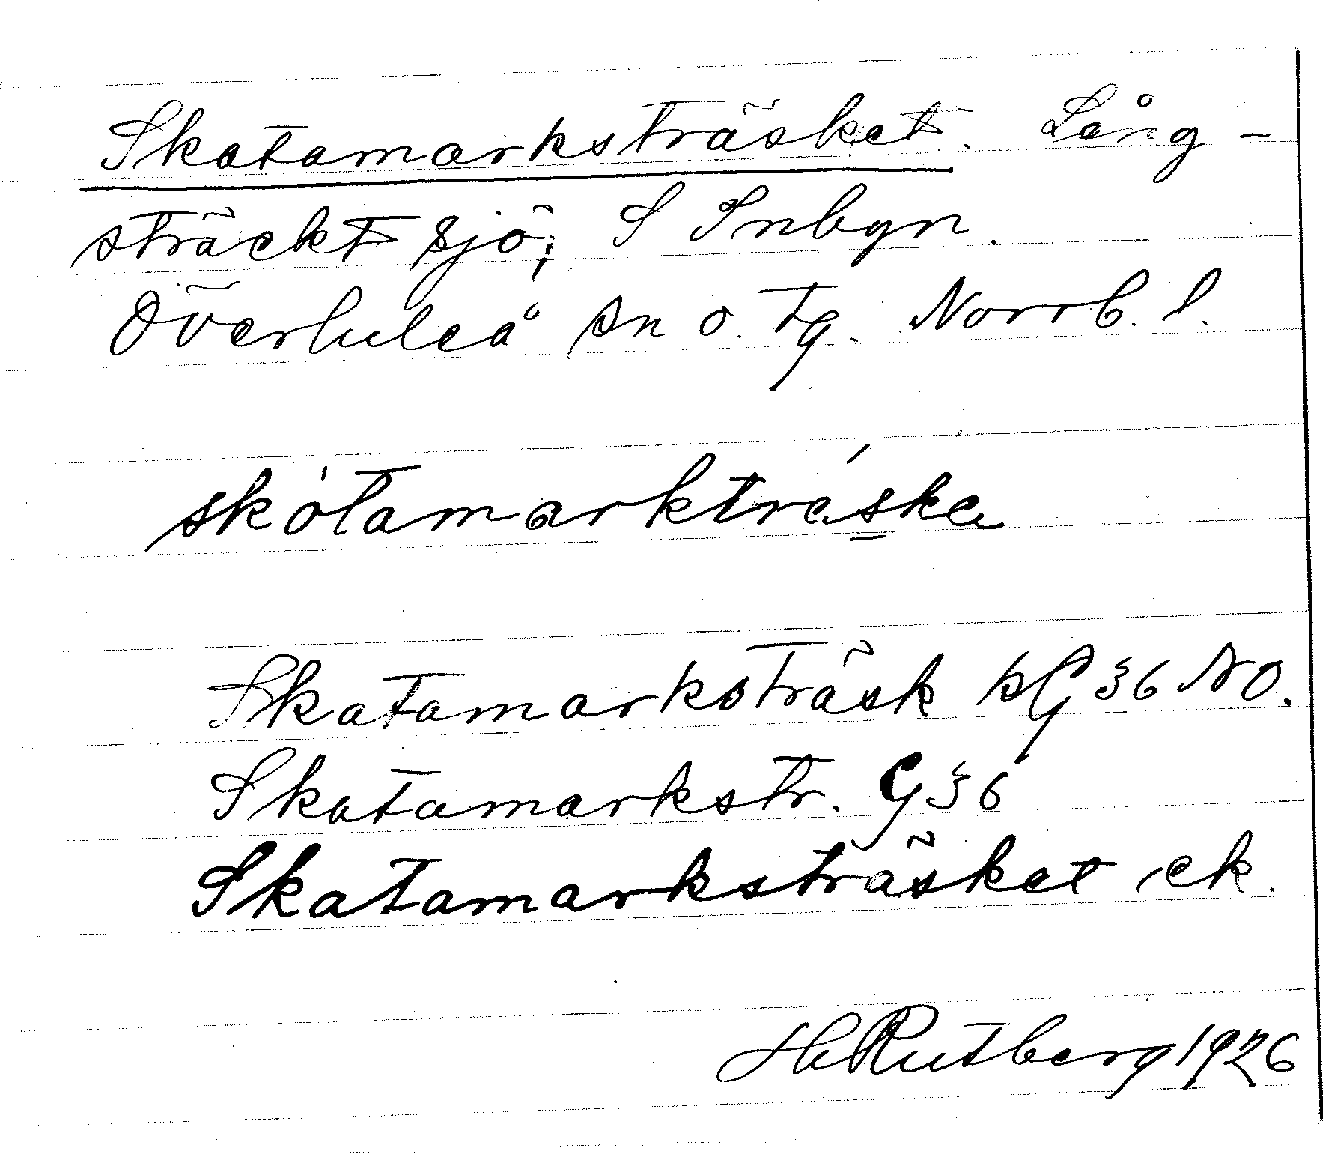 Skatamarksträsket. Lång-
sträckt sjö; S Inbyn.
Överluleå sn o. tg. Norrb. l.
skòtamarktráska
Skatamarksträsk hG 36 NO.
Skatamarkstr. G 36
Skatamarksträsket ek.
H Rutberg 1926